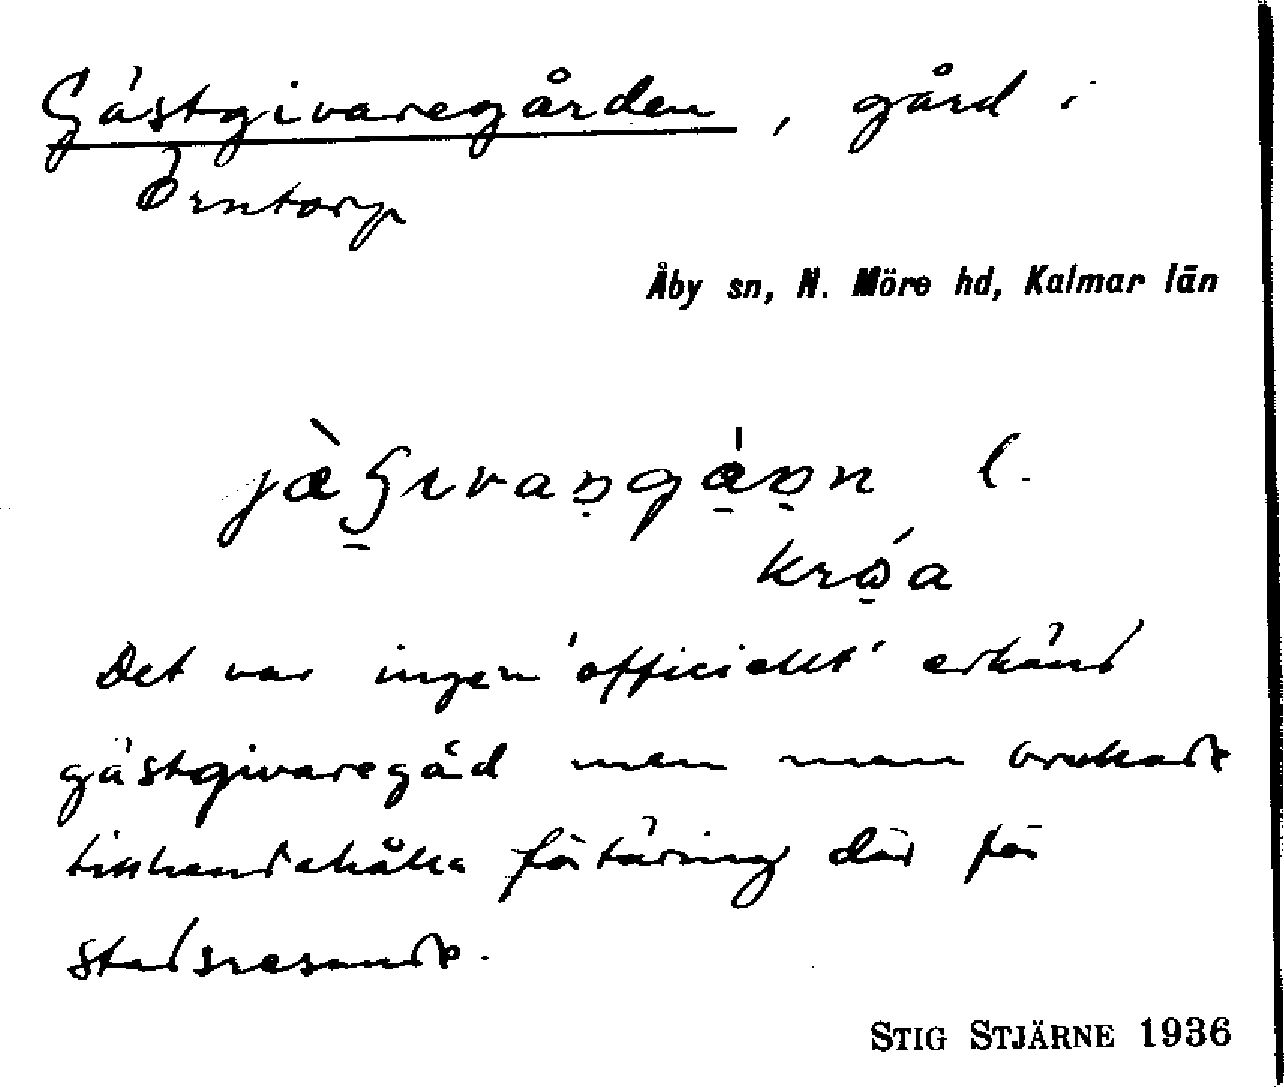 Gästgivaregården, gård i
Örntorp
Åby sn, N. Möre hd, Kalmar län
l.
Det var ingen 'officiellt' erkänd
gästgivaregård men man brukade
tillhandahålla förtäring där för
stadsresande.
STIG STJÄRNE 1936